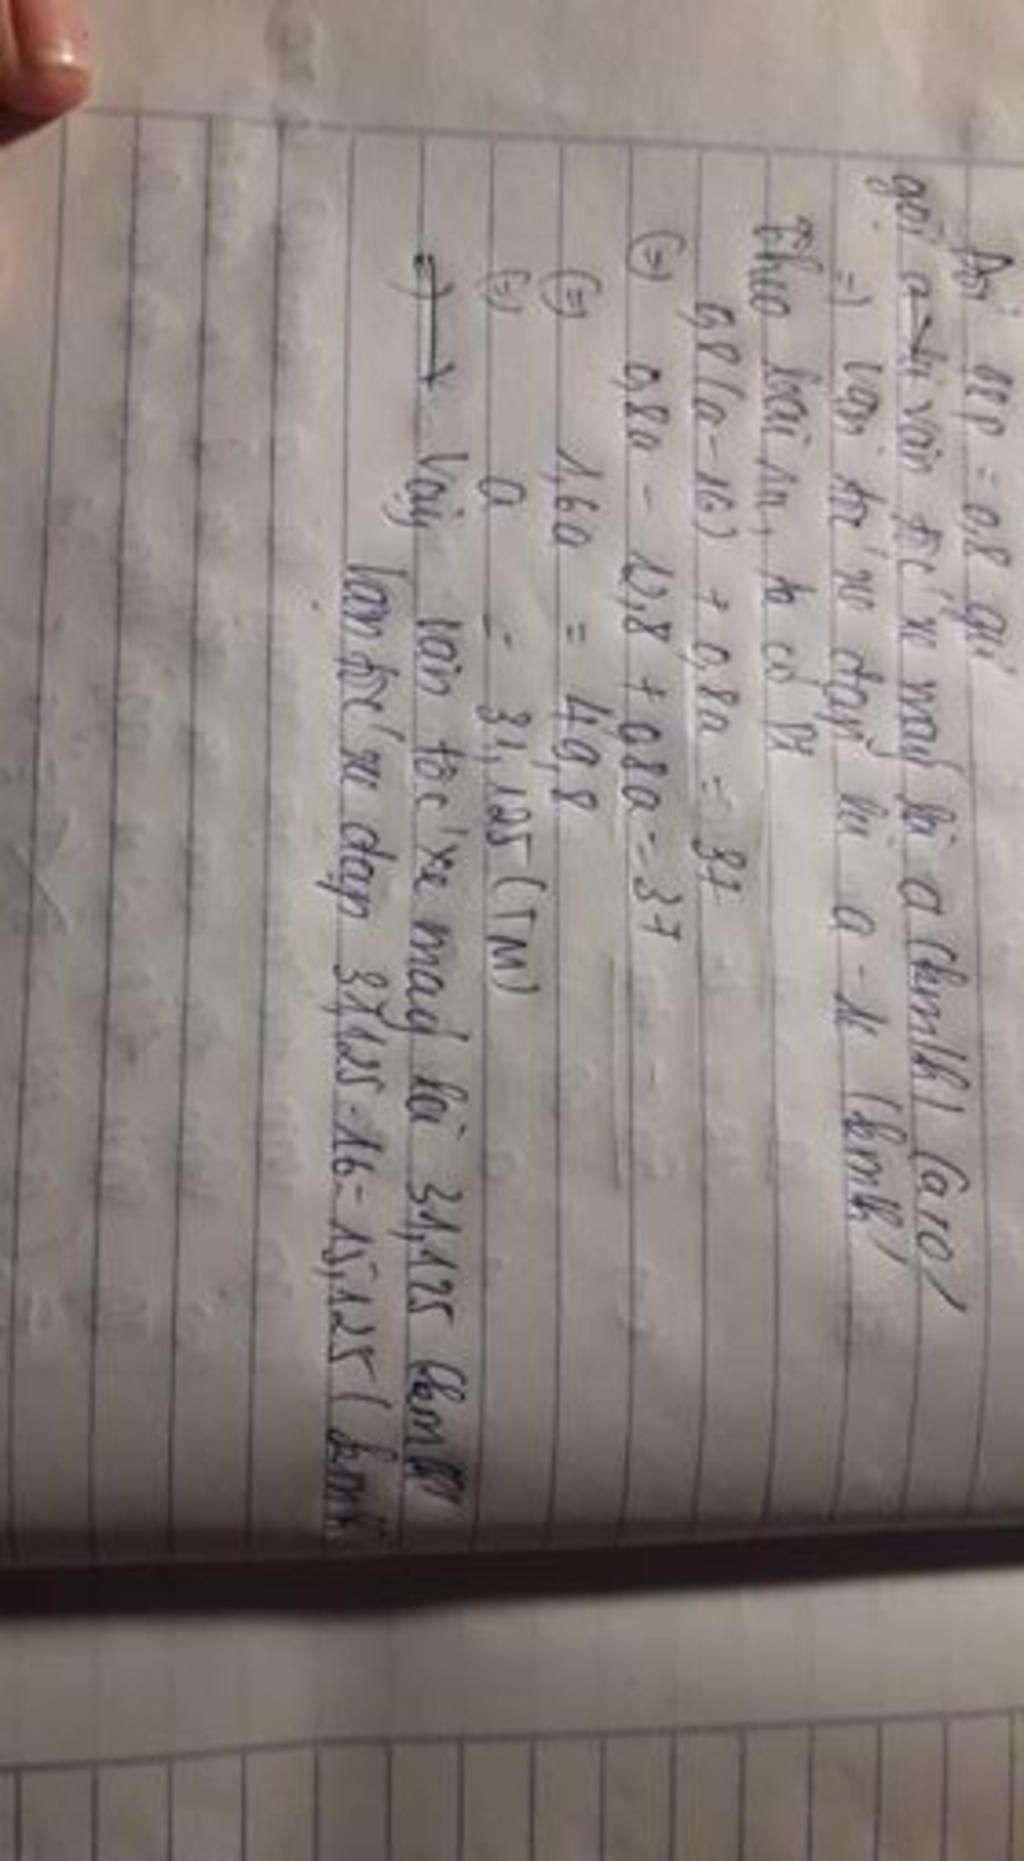 Đổi 48p = 0,8 giờ
gọi vận tốc xe máy là a (km/h) (a>0)
=) vận tốc xe đạp là a - 16 (km/h)
Theo bài ra, ta có pt
0,8(a-16) + 0,8a = 37
(=) 0,8a - 12,8 + 0,8a = 37
(=) 1,6a = 49,8
(=) a = 31,125 (TM)
=) Vậy vận tốc xe máy là 31,125 km/h
Vận tốc xe đạp 31,125-16=15,125 (km/h